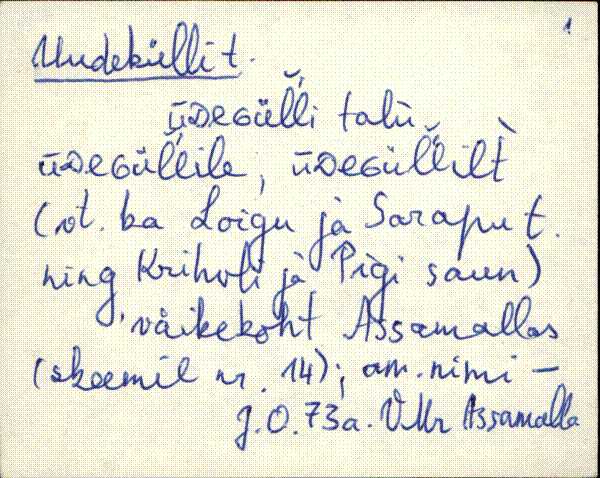 1
Uudeküllit.
ūᴅᴇɢül̆l̆i talù
ūᴅᴇɢül̆l̆ile, ūᴅᴇɢül̆l̆ilt̀
(vt. ka Loigu jà Saraput.
ning Krihvli jà Pigi saun)
väikekoht Assamallas
(skeemil nr. 14); am. nimi –
J.O. 73a. VMr Assamalla